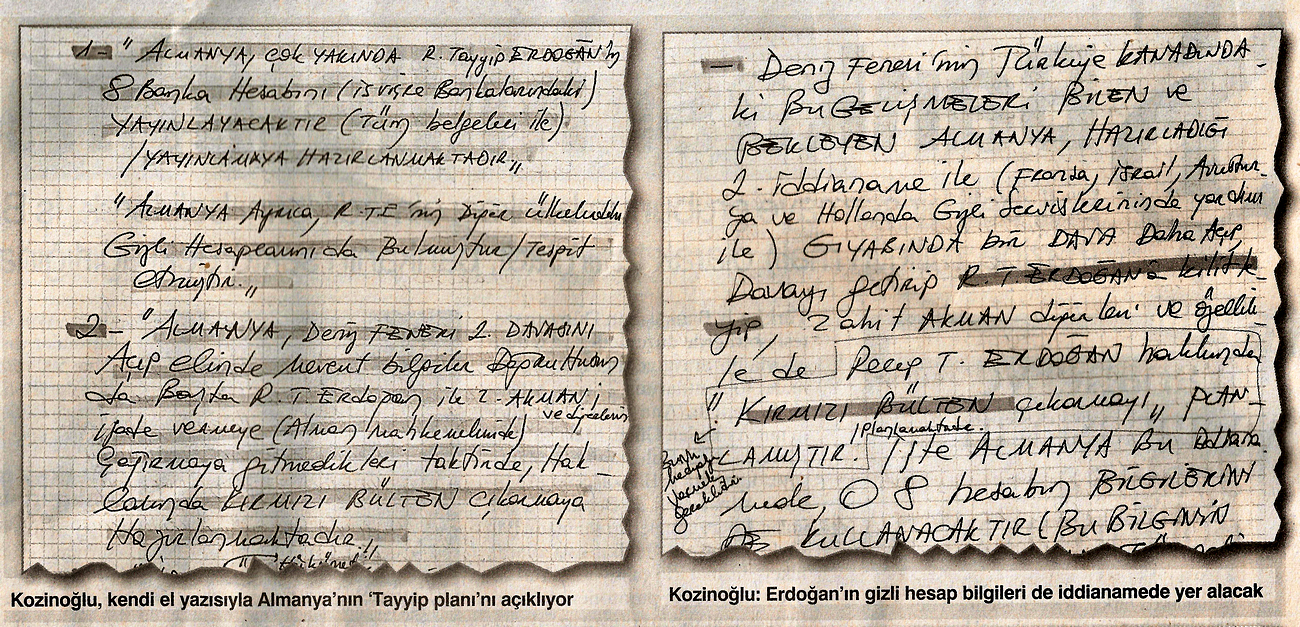 1- " ALMANYA, çok YAKINDA R. Tayyip ERDOĞAN'ın
8 Banka Hesabını (isviçre Bankalarındaki)
YAYINLAYACAKTIR (Tüm belgeleri ile)
/YAYINLAMAYA HAZIRLANMAKTADIR"
"ALMANYA Ayrıca, R.TE'nin Diğer ülkelerdeki
Gizli Hesaplarınıda Bulmuştur/Tespit
etmiştir."
2- "ALMANYA, Deniz FENERİ 2. DAVASINI
Açıp elinde mevcut bilgiler Doğrultusun
da Başta R.T Erdoğan ile Z. AKMAN'ı
ve diğerlerini
ifade vermeye (Alman mahkemelerinde)
çağırmaya gitmedikleri taktirde, Hak-
larında KIRMIZI BÜLTEN çıkarmaya
Hazırlanmaktadır"
- Deniz Feneri'nin Türkiye KANADINDA-
ki Bu GELİŞMELERİ BİLEN ve
BEKLEYEN ALMANYA, HAZIRLADIĞI
2. iddianame ile (Fransa, israil, Avustur-
ya ve Hollanda Gizli Servislerininde yardımı
ile) GIYABINDA bir DAVA Daha Açıp,
Davayı getirip R.T ERDOĞAN'a kilitle-
yip, Zahit AKMAN diğerleri ve özellik-
le de Recep T. ERDOĞAN hakkında
" KIRMIZI BÜLTEN çıkarmayı" PLAN-
/planlamaktadır.
LAMIŞTIR. İşte ALMANYA Bu
nede, O 8 hesabın BİLGİLERİNİ
KULLANACAKTIR (BU BİLGİNİN
Kozinoğlu, kendi el yazısıyla Almanya'nın 'Tayyip planı'nı açıklıyor
Kozinoğlu: Erdoğan'ın gizli hesap bilgileri de iddianamede yer alacak